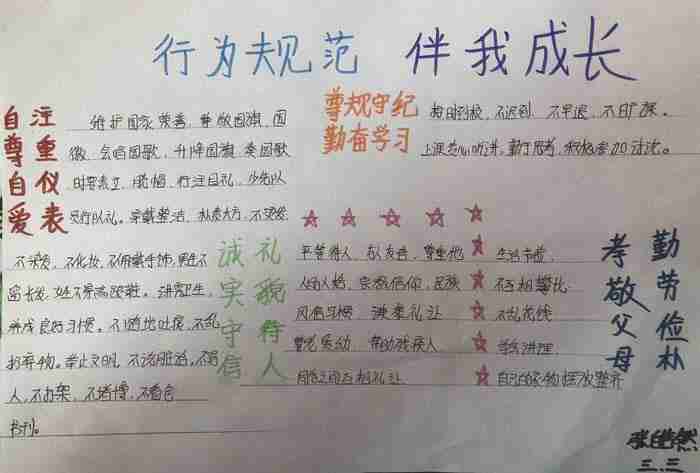 行为规范 伴我成长
自尊自爱 注重仪表
维护国家荣誉,尊敬国旗、国
徽,会唱国歌,升降国旗、奏国歌
时要肃立、脱帽、行注目礼,少先队
员行队礼。穿戴整洁、朴素大方,不烫发,
不染发,不化妆,不佩戴首饰,男生不
留长发,女生不穿高跟鞋。讲究卫生,
养成良好习惯。不随地吐痰,不乱
扔弃物。举止文明,不说脏话,不骂
人,不打架,不赌博,不看
书刊。
尊规守纪
勤奋学习
按时到校,不迟到,不早退,不旷课。
上课专心听讲,勤于思考,积极参加讨论。
诚实守信 礼貌待人
平等待人,与人友善,尊重他
人的人格、宗教信仰、民族
风俗习惯,谦恭礼让
尊老爱幼,帮助残疾人
同学之间互相礼让
生活节俭,
不互相攀比
不乱花钱
学会料理
自己的衣物摆放整齐
勤劳俭朴
孝敬父母
三.三